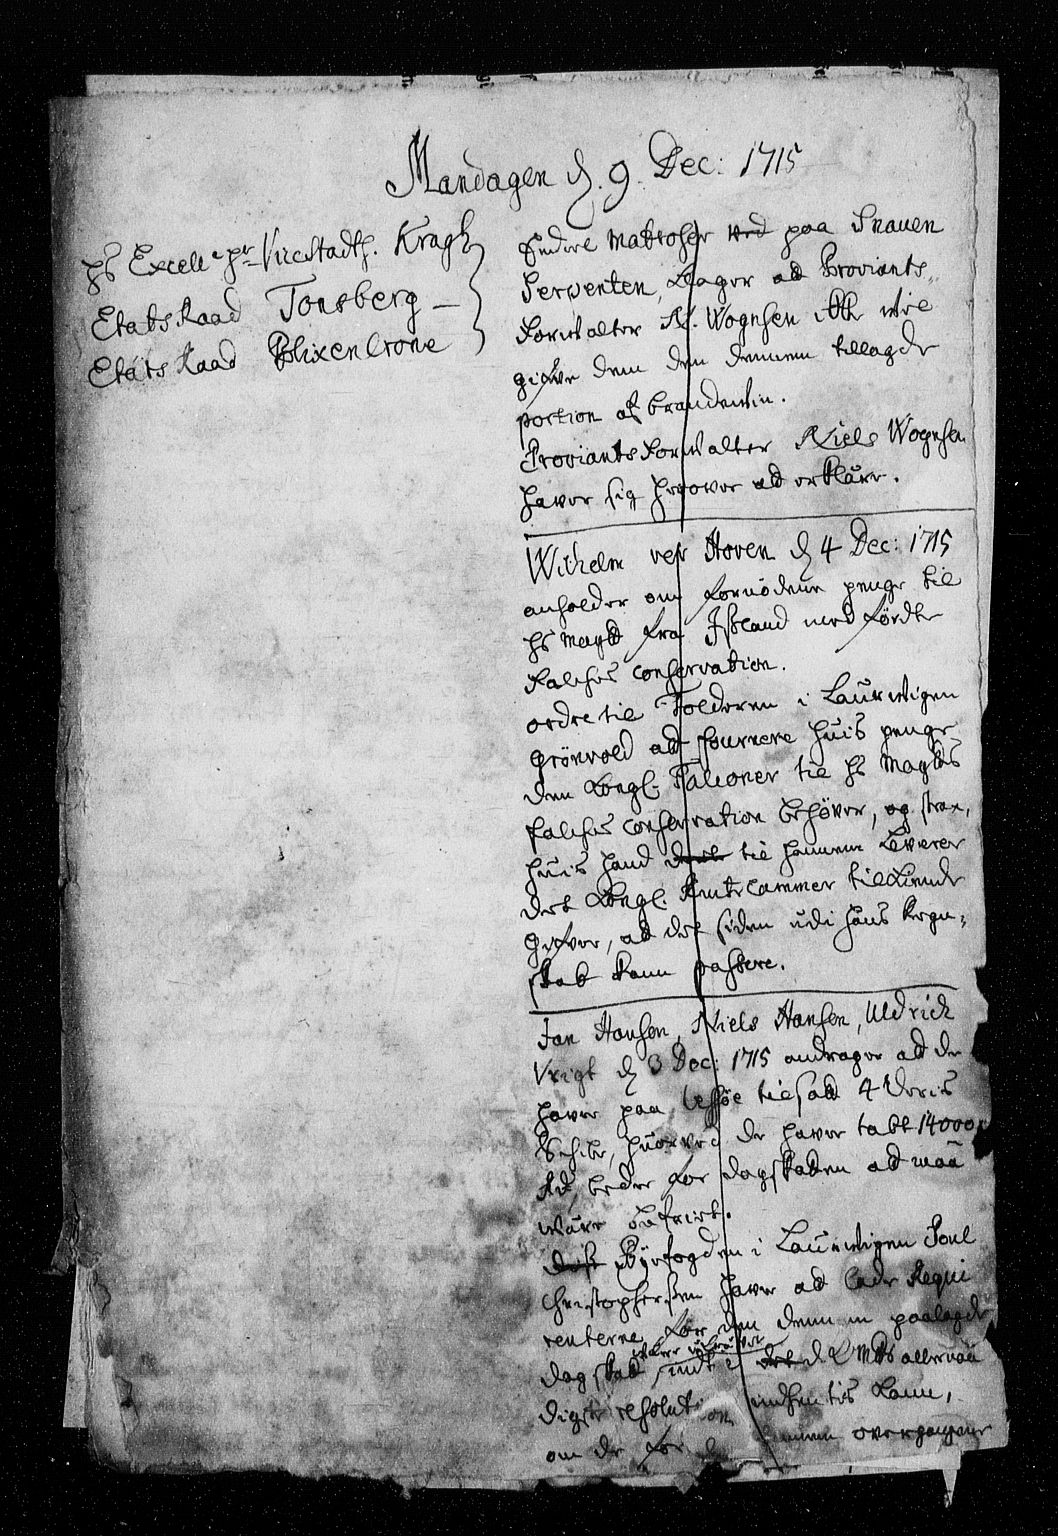 Mandagen d. 9. Dec: 1715
hs Excell: hr Vicestadth. Kragh
EtatsRaad Tonsberg
Etats Raad Blixencrone
Endeel Matroser ved paa Snauen
Serpenten, klager ad Proviants-
forwalter N. Wognsen iche wil
gifve dem den dennem tillagde
portion af brendewin.
Proviantsforwalter Niels Wognsen
hawer sig herover ad erklære.
Wilhelm von Hoven d 4 Dec: 1715
anholder om fornøden penge til
hs Mayts fra Island med førdte
falches conservation.
ordre til Tolderen i Laurwigen
Grönvold ad fournere huis penge
den Kongl. Falconer til hs Mayts
falches conservation behøver, og strax,
huis hand til hannem Leverer
det Kongl. Rentecammer tilkiende
Gifver, ad det siden udi hans Regn-
skab kan passere.
Jan Hansen, Niels Hansen, Uldrich
Vrigt d 3 Dec: 1715 andrager ad de
haver paa tilsatt 4 deris
Schibe, huorved de haver tabt 14000
Rd, beder for dagskatten ad maa
være befriet.
Byefogden i Laurwigen Poul
Christophersen haver ad lade Requi
renterne for den dennem paalagde
dagskat indtil d Mts allernaa
digste resolution indhentis kand,
om de for dennem overgangne